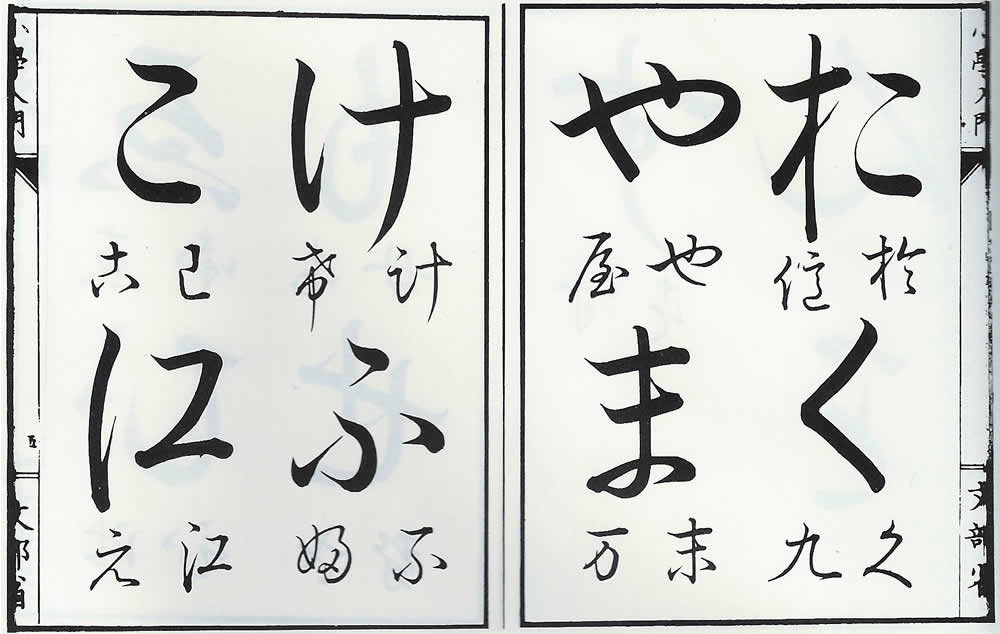 小學入門
文部省
お
於 億
く
久 九
や
也 屋
ま
末 万
け
計 希
ふ
不 婦
こ
己 古
江
江 元
小學入門
五
文部省